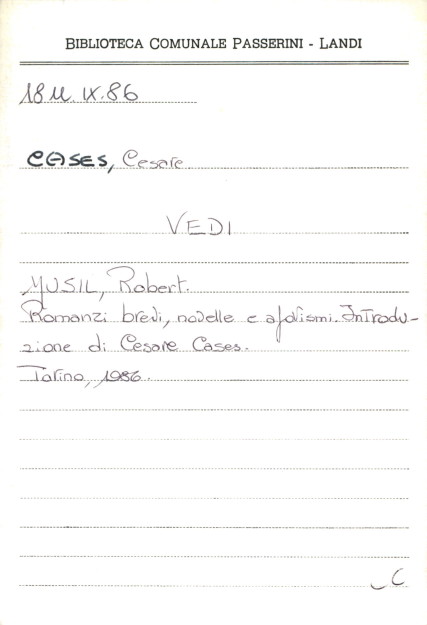 BIBLIOTECA COMUNALE PASSERINI - LANDI
18 U. IX. 86
CASES, Cesare
VEDI
MUSIL, Robert.
Romanzi brevi, novelle e aforismi. Introdu-
zione di Cesare Cases.
Torino, 1986.
C